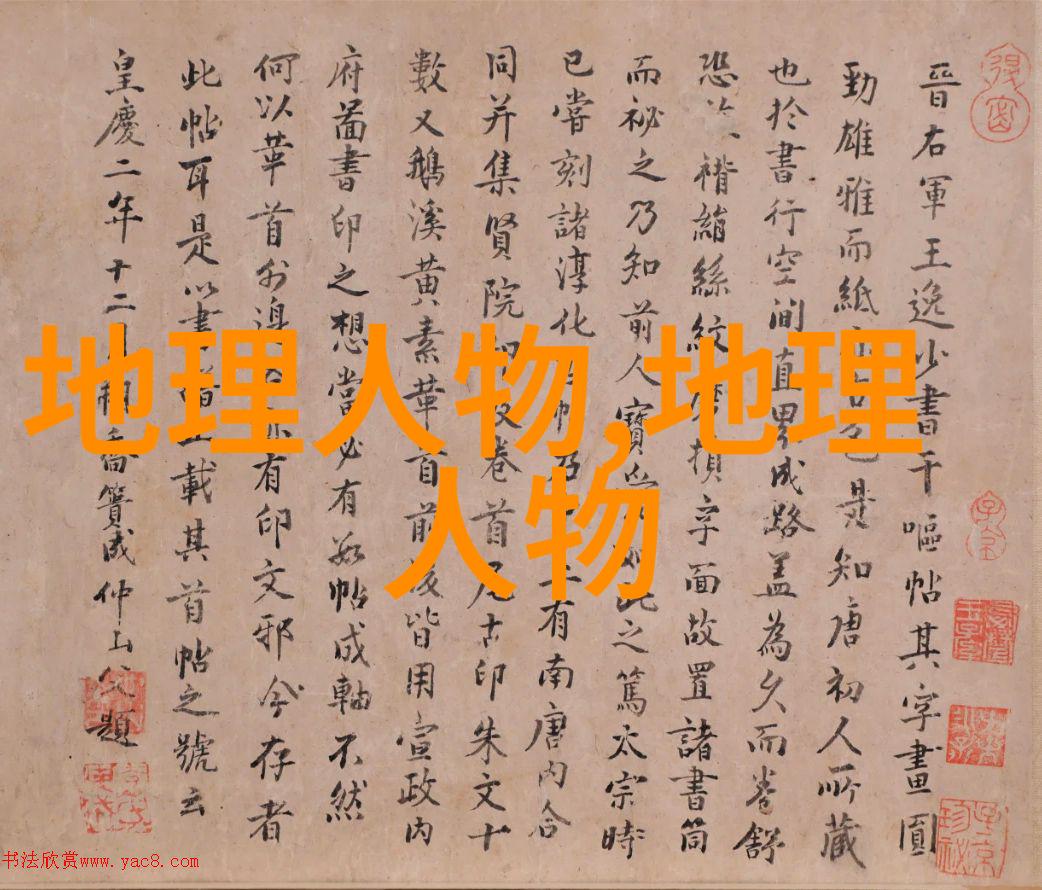 晉右軍王逸少書干嘔帖其字畫圓
勁雄雅而紙色是知唐初人所藏
也於書行空間直界成路蓋為久而卷舒
恐褙縮絲紋磨損字面故置諸書筒
而祕之乃知前人寶此之篤太宗時
已嘗刻諸淳化有南唐內合
同并集賢院卷首尾古印朱文十
數又鵝溪黃素華首前後皆用宣政內
府啚書印之想當必有數帖成軸不然
何以華首外有印文邪今存者
此帖耳是以書載其首帖之號云
皇慶二年十二月喬簣成仲山父題
地理人物,地理
人物
书法欣赏www.yac8.com